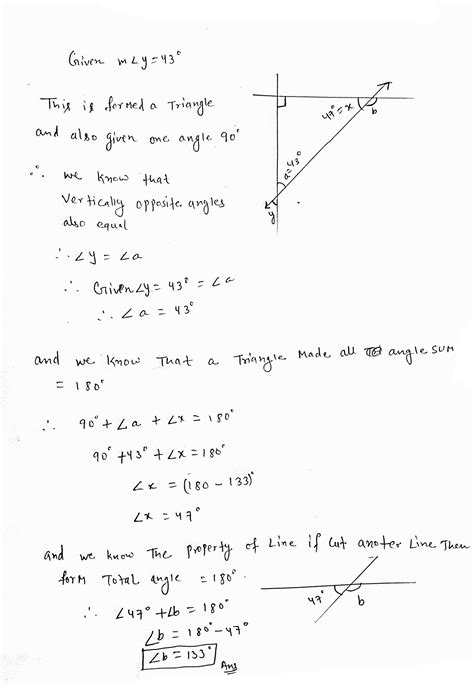 Given m∠y = 43°
This is formed a Triangle
and also given one angle 90°
∴ we know that
vertically opposite angles
also equal
∴ ∠y = ∠a
∴ Given ∠y = 43° = ∠a
∴ ∠a = 43°
49° = x
b
a = 43°
y
and we know That a Triangle Made all angle SUM
= 180°
∴ 90° + ∠a + ∠x = 180°
90° + 43° + ∠x = 180°
∠x = (180 - 133)°
∠x = 47°
and we know The property of Line if cut anoter Line Then
form Total angle = 180°
∴ ∠47° + ∠b = 180°
∠b = 180° - 47°
∠b = 133° Ans
47°
b